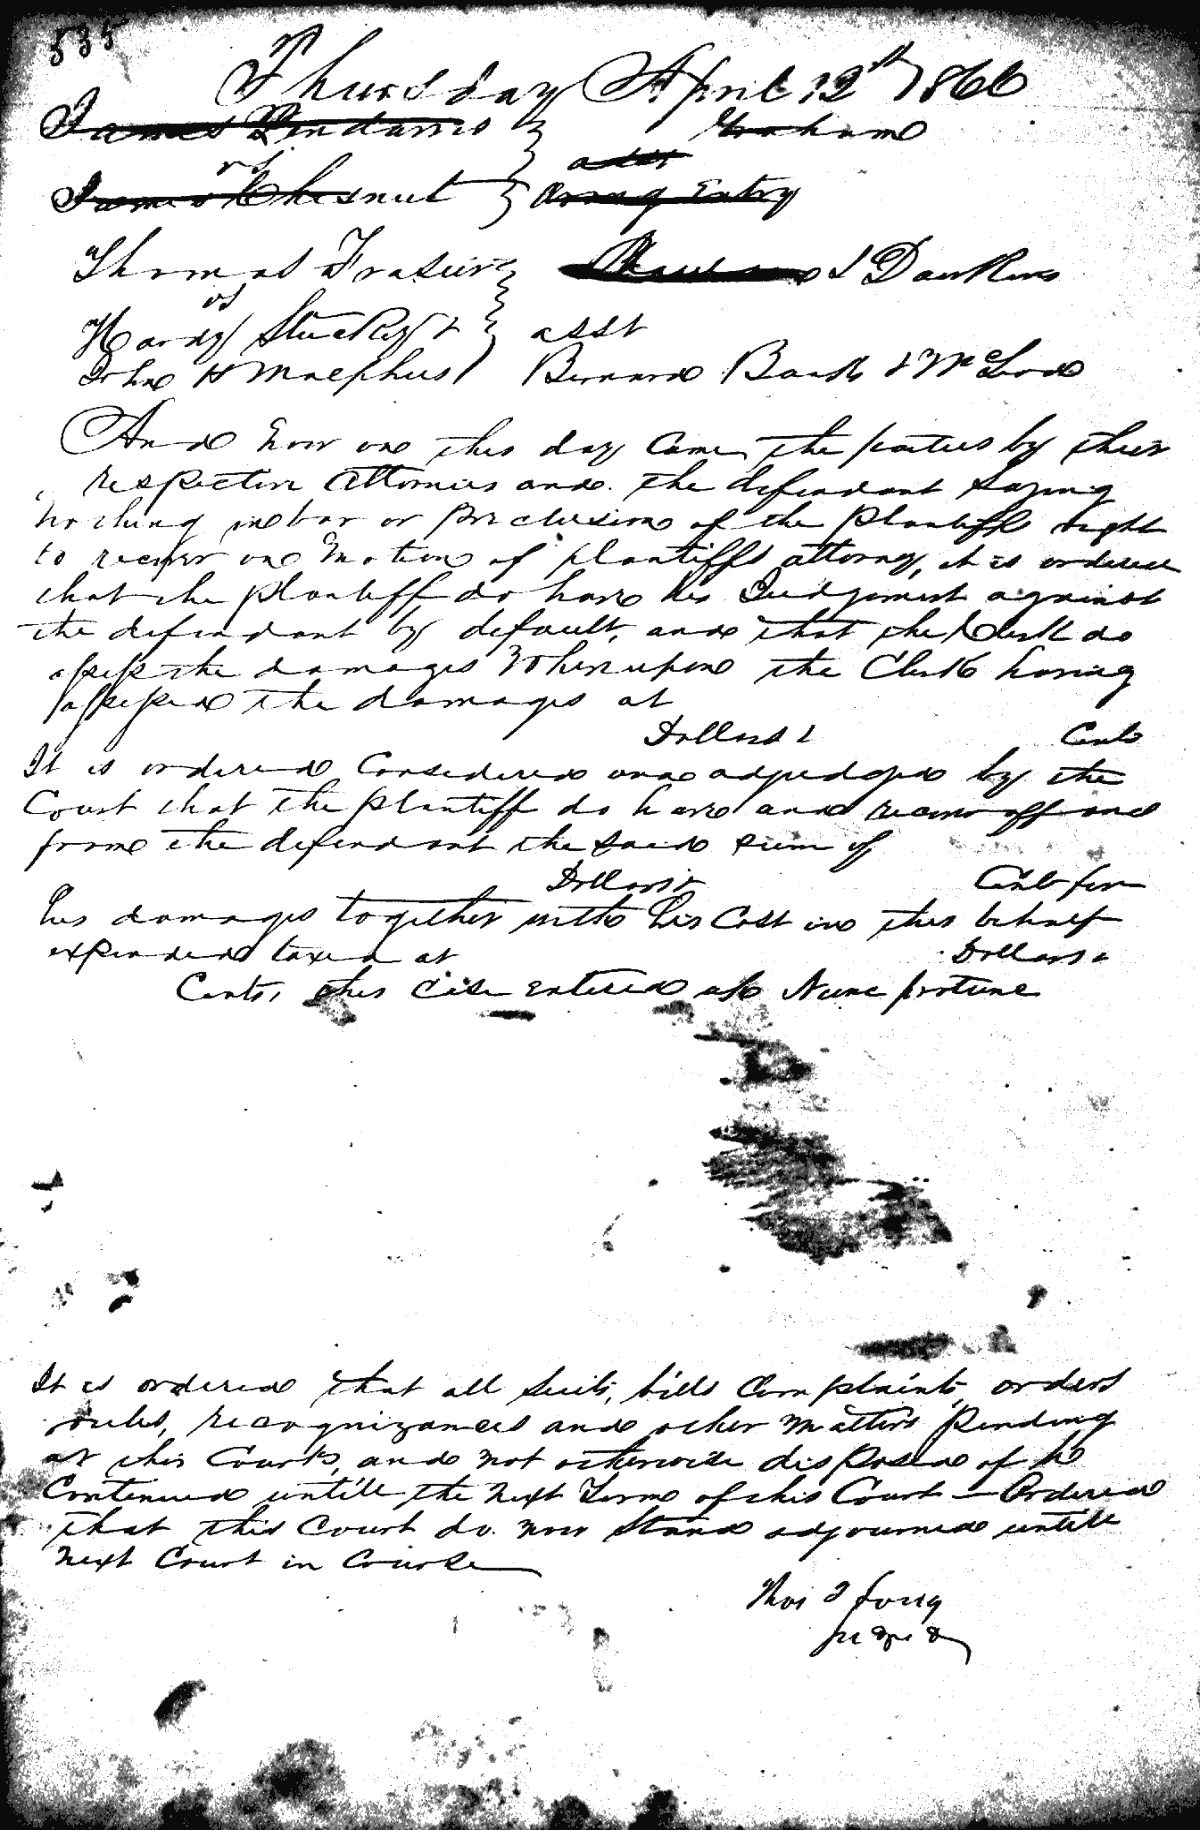 535
Thursday April 12th 1866
James Pendarvis } Graham
vs } asst
James Chesnut } Wrong Entry
Thomas Frasier } & Dawkins
vs
Hardy Stuckey & } asst
John H Macphus Bernard Bank & McLeod
And now one this day Came the parties by their
respective Attornies and the defendant Saying
nothing in bar or Preclusion of the Plantiffs right
to recover one Motion of plantiffs attorney, it is ordered
that the Plantiff do have his Judgement against
the defendant by default, and that the Clerk do
assess the damages Whereupon the Clerk having
assessed the damages at
Dollars & Cents
It is ordered Considered and adjudged by the
Court that the Plantiff do have and recover off and
from the defendant the said sum of
Dollars & Cents for
his damages together with his Cost in this behalf
expended taxed at Dollars &
Cents, this Case entered as Nunc protunc
It is ordered that all Suits, bills Complaints, orders
rules, recognizances and other Matters Pending
at this Courts, and not otherwise disposed of be
Continued untill the next Term of this Court — Ordered
that this Court do now Stand adjourned untill
next Court in Course
Thos J
Judge